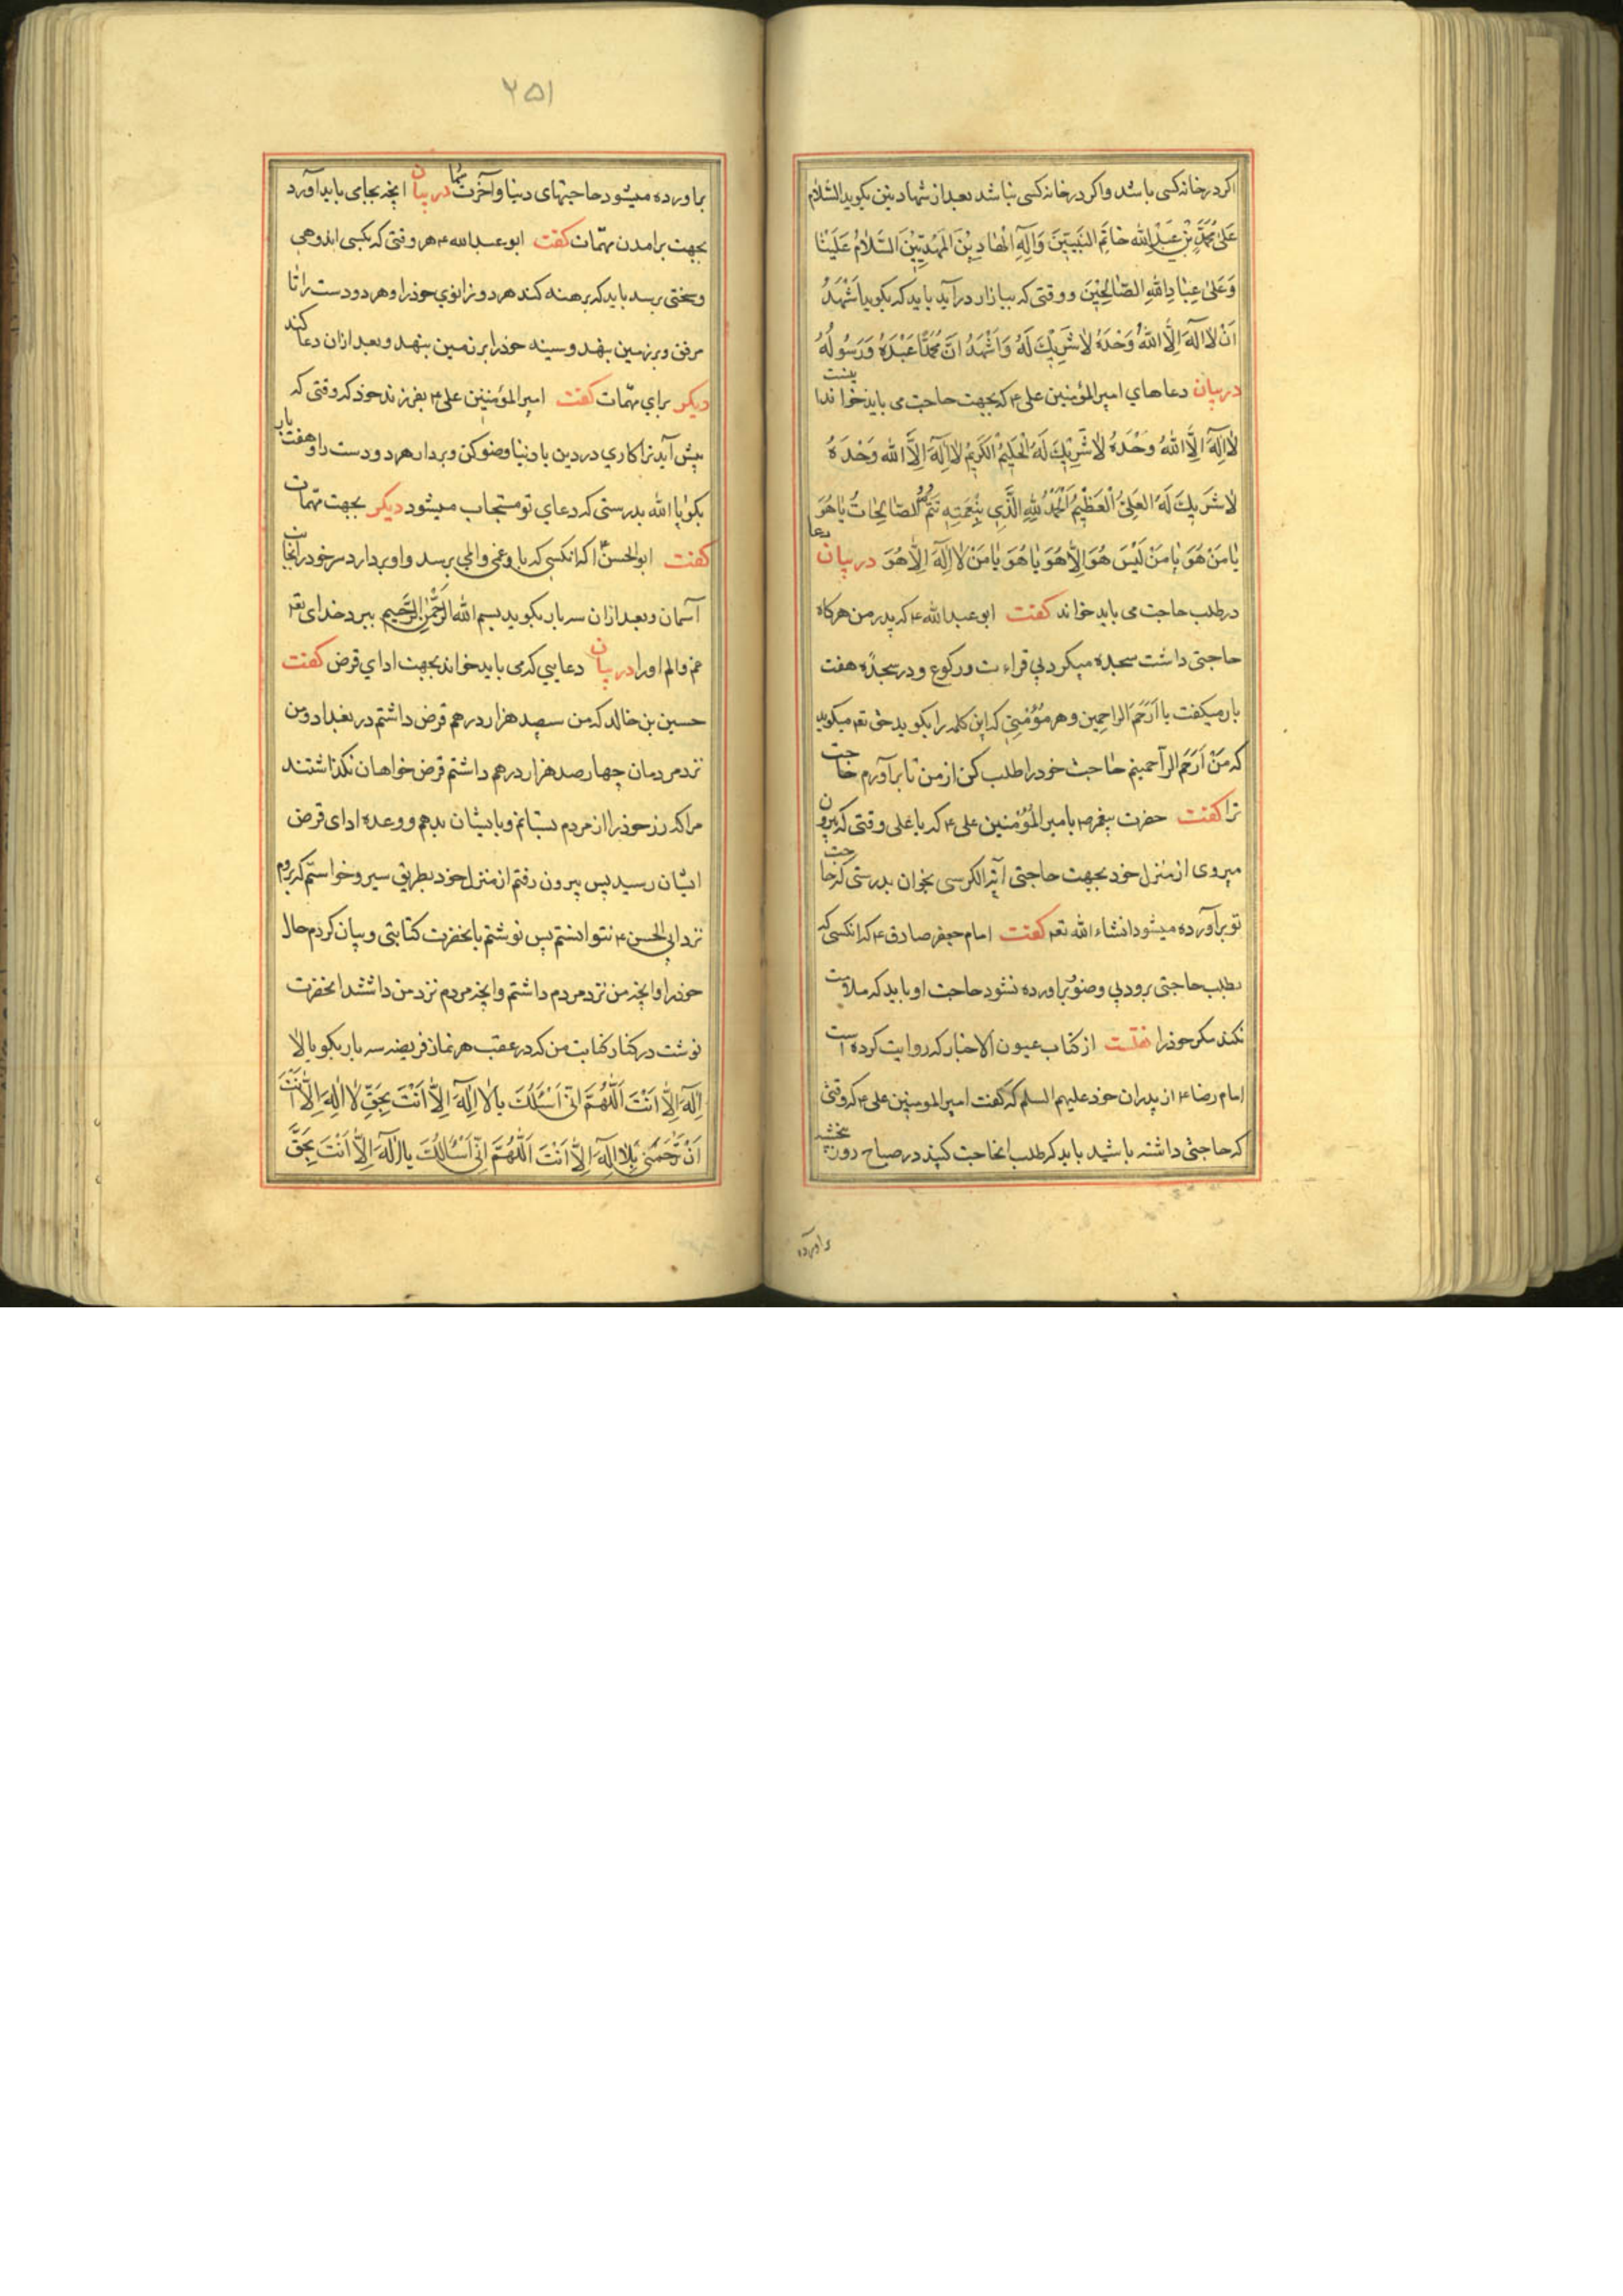 اکر در خانه کسی باشد و اکر در خانه کسی نباشد بعد از شهادتین بکوید السّلام
عَلیٰ مُحَمَّدِ بْنِ عَبْدِ الله خٰاتَمِ النَبیّینَ وَآلِهِ الْهٰادِیْنَ المَهْدِیّیْنَ السَّلاٰمُ عَلَیْنٰا
وَعَلیٰ عِبٰادِ اللهِ الصّٰالِحْینَ و وقتی که ببازار در آید باید که بکوید اَشْهَدُ
اَنْ لاٰ اِلٰهَ اِلَّا اللهُ وَحْدَهُ لاٰ شَرِیْكَ لَهُ وَاَشْهَدُ انَّ مُحَمَّدًا عَبْدَهُ وَرَسُولُهُ
در بیان دعاهای امیر المؤمنین علی ع که بجهت حاجت می باید خواند اینست
لاٰ اِلٰهَ اِلَّا اللهُ وَحْدَهُ لاٰ شَرِیْكَ لَهُ الْحَلِیْمُ الْکَرِیْمُ لاٰ اِلٰهَ اِلَّا الله وَحْدَهُ
لاٰ شَرِیكَ لَهُ العَلِیُّ الْعَظْیِمُ اَلْحَمْدُ لِلّٰهِ الَّذَی بِنِعْمَتِهِ تَتِمُّ الصّٰالِحٰاتُ یٰا هُوَ
یٰا مَنْ هُوَ یٰا مَنْ لَیْسَ هُوَ اِلّٰا هُوَ یٰا هُوَ یٰا مَنْ لاٰ اِلٰهَ اِلّٰا هُوَ در بیان دعا
در طلب حاجت می باید خواند کفت ابو عبد الله ع که پدر من هرکاه
حاجتی داشت سجده میکرد بی قراءت و رکوع و در سجده هفت
بار میکفت یا اَرْحَمَ الراحِمِین و هر مؤمنی که این کلمه را بکوید حق تعه میکوید
که مَنْ اَرَحَم الراحمینم حٰاجت خود را طلب کن از من تا بر آورم حاجت
ترا کفت حضرت پیغمبر ص بامیر المؤمنین علی ع که یا علی وقتی که بیرون
میروی از منزل خود بجهت حاجتی آیة الکرسی بخوان بدرستی که حاجت
تو برآورده میشود انشاء الله تعه کفت امام جعفر صادق ع که انکسی که
بطلب حاجتی برود بی وضو برآورده نشود حاجت او باید که ملامت
نکند مکر خوذ را نقلست از کتاب عیون الاخبار که روایت کرده است
امام رضا ع از پدران خود علیهم السلم که کفت امیر المومنین علی ع که وقتی
که حاجتی داشته باشید باید که طلب انحاجت کنید در صباح روز پنجشنبه
براورده
۲۵۱
براورده میشود حاجتهای دنیا و آخرت شما در بیان انچه بجای باید آورد
بجهت برامدن مهمّات کفت ابو عبد الله ع هر وقتی که بکسی اندوهی
و سختی برسد باید که برهنه کند هر دو زانوی خوذ را و هر دو دست را تا
مرفق و بر زمین بنهد و سینه خوذ را بر زمین بنهد و بعد ازان دعا کند
دیکر برای مهمّات کفت امیر المؤمنین علی ع بفرزند خوذ که وقتی که
پیش آید ترا کاری در دین یا دنیا وضو کن و بردار هر دو دست را و هفت بار
بکو یٰا الله بدرستی که دعای تو مستجاب میشود دیکر بجهت مهمّات
کفت ابو الحسن ع که انکسی که باو غمی و المی برسد و او بردارد سر خود را بجانب
آسمان و بعد ازان سه بار بکوید بسم الله الرَّحْمٰنِ الرَّحیِم ببرد خدای تعه
غم و الم او را در بیان دعایی که می باید خواند بجهت ادای قرض کفت
حسین بن خالد که من سیصد هزار درهم قرض داشتم در بغداد و من
نزد مردمان چهار صد هزار درهم داشتم قرض خواهان نکذاشتند
مرا که زر خوذ را از مردم بستانم و بایشان بدهم و وعده ادای قرض
ایشان رسید پس بیرون رفتم از منزل خود بطریق سیر و خواستم که بروم
نزد ابی الحسن ع نتوانستم پس نوشتم بانحضرت کتابتی و بیان کردم حال
خوذ را و انچه من نزد مردم داشتم و انچه مردم نزد من داشتند انحضرت
نوشت در کنار کتابت من که در عقب هر نماز فریضه سه بار بکو یا لاٰ
اِلٰهَ اِلّٰا اَنْتَ اَللّٰهُمَّ انّی اَسْئَلُكَ بِاٰلاٰ اِلٰهَ اِلّٰا اَنْتَ بِحَقِّ لاٰ اِلٰهَ اِلّٰا اَنْتَ
اَنْ تَرْحَمَنی بِلاٰ اِلٰهَ اِلّٰا اَنْتَ اَللّٰهُمَّ اِنّی اَسْئَالُكَ یا لاٰ اِلٰهَ اِلّٰا اَنْتَ بِحَقَّ